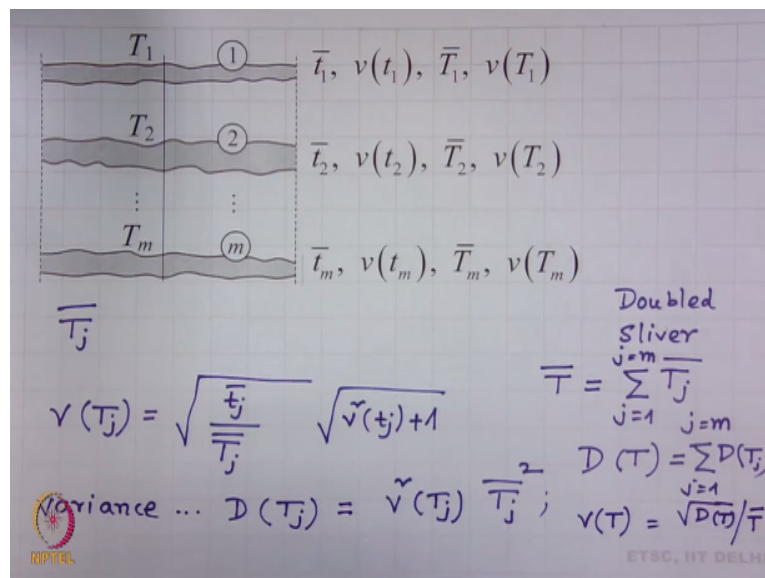 T₁ ① t̄₁, v(t₁), T̄₁, v(T₁)
T₂ ② t̄₂, v(t₂), T̄₂, v(T₂)
⋮ ⋮
Tₘ ⓜ t̄ₘ, v(tₘ), T̄ₘ, v(Tₘ)
T̄ⱼ
Doubled
Sliver
T̄ = Σ_{j=1}^{j=m} T̄ⱼ
v(Tⱼ) = √(t̄ⱼ/T̄ⱼ) √(v²(tⱼ)+1)
D(T) = Σ_{j=1}^{j=m} D(Tⱼ
variance ... D(Tⱼ) = v²(Tⱼ) T̄ⱼ² ;
v(T) = √D(T)/T̄
NPTEL
ETSC, IIT DELH